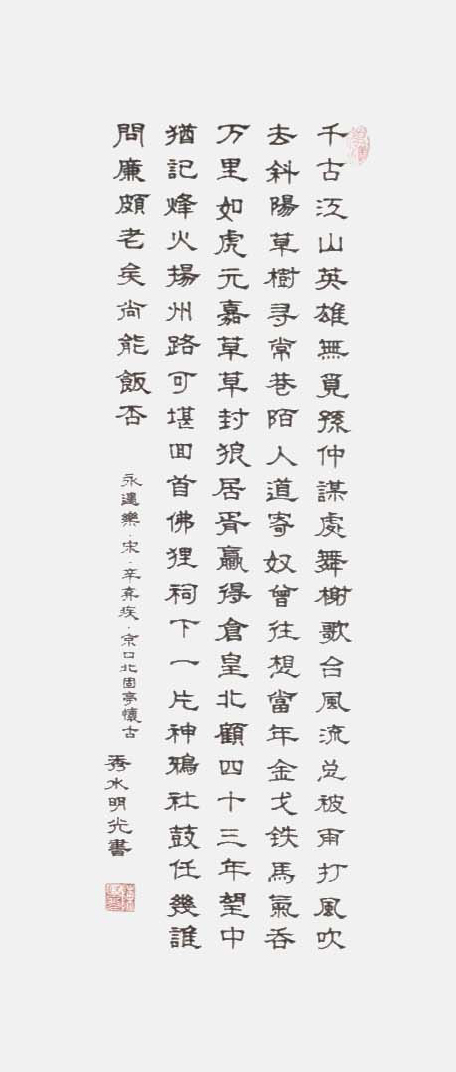 千古江山英雄無覓孫仲謀處舞榭歌台風流总被雨打風吹
去斜陽草樹寻常巷陌人道寄奴曾住想當年金戈铁馬氣吞
万里如虎元嘉草草封狼居胥赢得倉皇北顧四十三年望中
猶記烽火揚州路可堪回首佛狸祠下一片神鴉社鼓任幾誰
問廉頗老矣尚能飯否
永遇樂·宋·辛弃疾·京口北固亭懷古
秀水明光書